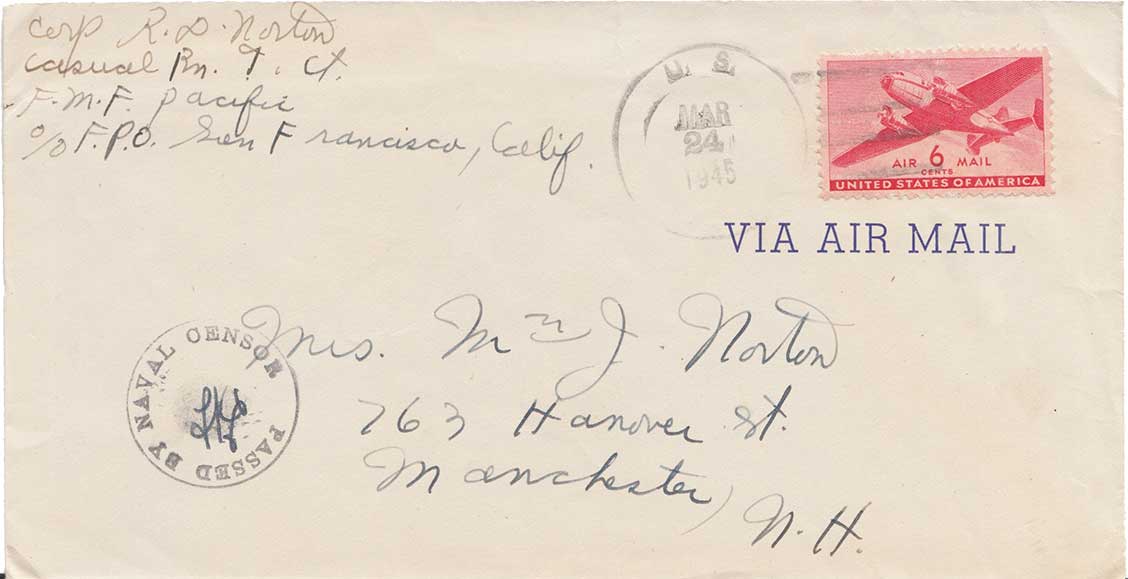 Corp R. D. Norton
Casual Bn. T. Ct.
F.M.F. Pacific
c/o F.P.O. San Francisco, Calif.
U. S.
MAR
24
1945
AIR 6 MAIL
CENTS
UNITED STATES OF AMERICA
VIA AIR MAIL
Mrs. Wm J. Norton
763 Hanover St.
Manchester, N.H.
PASSED BY NAVAL CENSOR